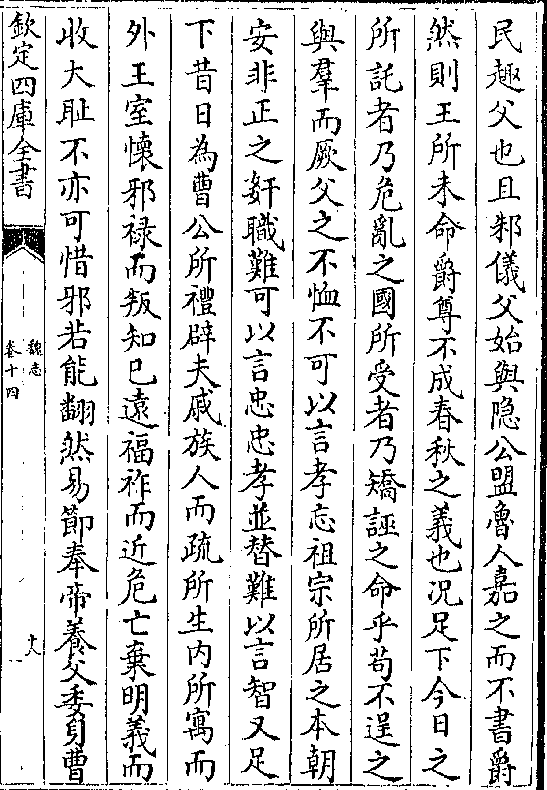 民趣父也且邾儀父始與隐公盟魯人嘉之而不書爵
然則王所未命爵尊不成春秋之義也况足下今日之
所託者乃危亂之國所受者乃矯誣之命乎苟不逞之
與羣而厥父之不恤不可以言孝忘祖宗所居之本朝
安非正之奸職難可以言忠忠孝並替難以言智又足
下昔日為曹公所禮辟夫戚族人而疏所生内所寓而
外王室懷邪禄而叛知巳遠福祚而近危亡棄明義而
收大恥不亦可惜邪若能翻然易節奉帝養父委身曹
欽定四庫全書
魏志
卷十四
十八